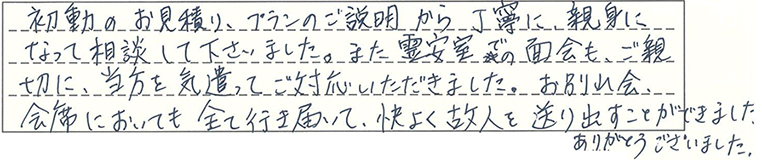 初動のお見積り、プランのご説明から丁寧に、親身に
なって相談して下さいました。また霊安室での面会も、ご親
切に、当方を気遣ってご対応いただきました。お別れ会、
会席においても全て行き届いて、快よく故人を送り出すことができました
ありがとうございました。